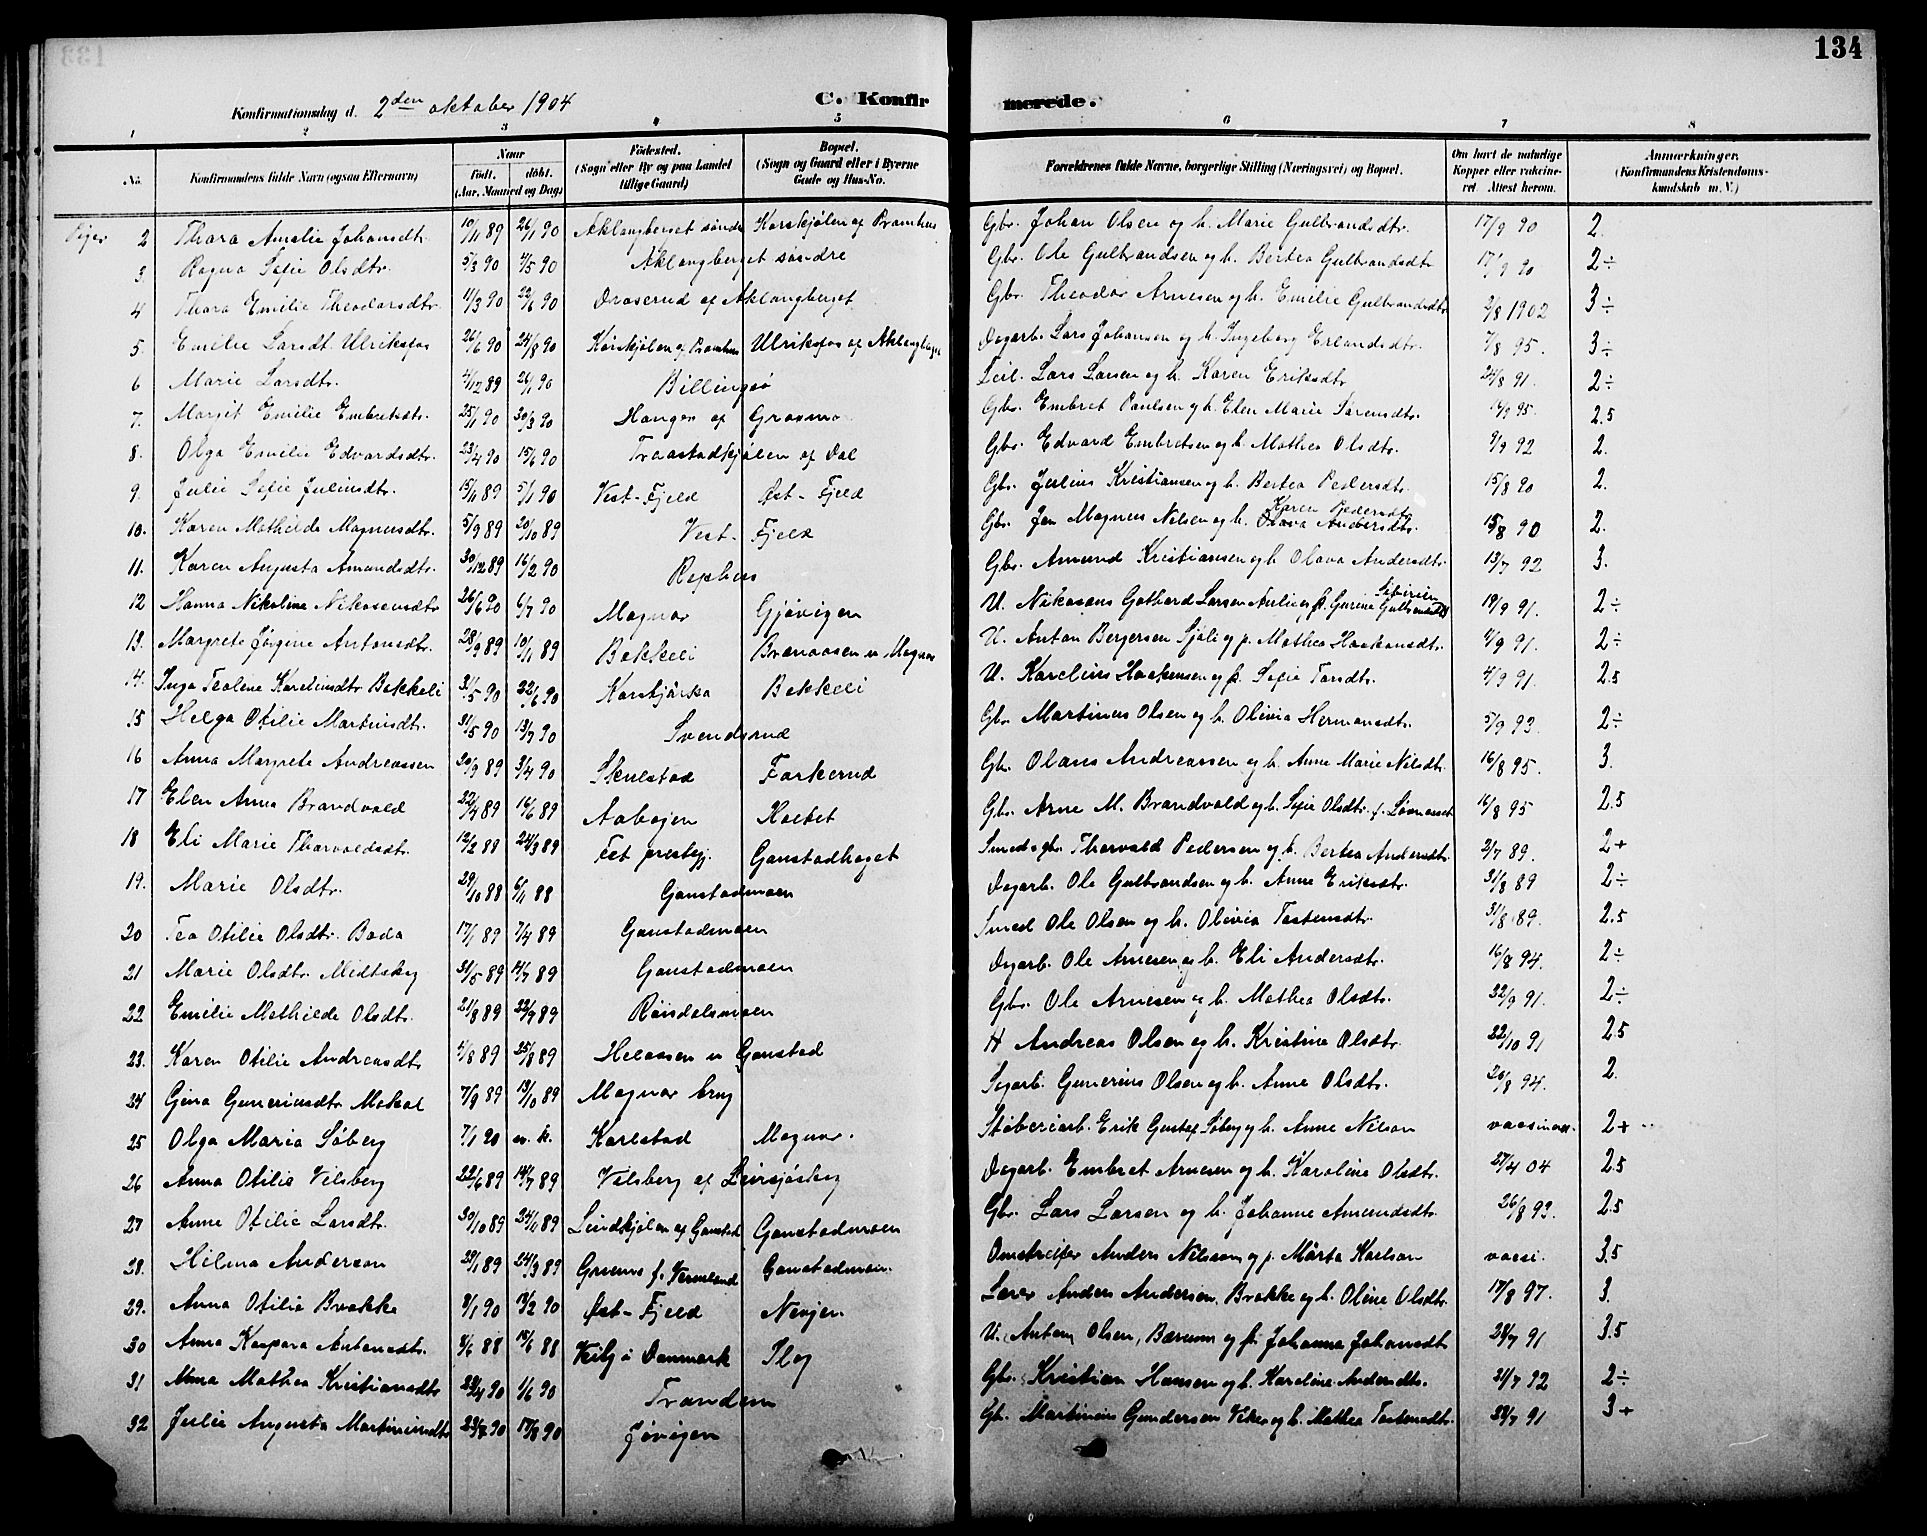 134
Konfirmationsdag d. 2den oktober 1904
C. Konfirmerede.
1 2 3 4 5 6 7 8
No. Konfirmandens fulde Navn (ogsaa Efternavn) Naar Født. døbt. (Aar, Maaned og Dag) Fødested. (Sogn eller By og paa Landet tillige Gaard) Bopæl. (Sogn og Gaard eller i Byerne Gade og Hus-No. Forældrenes fulde Navne, borgerlige Stilling (Næringsvei) og Bopæl. Om havt de naturlige Kopper eller vaccineret. Attest herom. Anmærkninger. (Konfirmandens Kristendomskundskab m. V.)
Piger 2 Thora Amalie Johansdtr. 10/11 89 26/1 90 Aklangberget søndre Korskjølen af Bramhus Gbr. Johan Olsen og h. Marie Gulbrandsdtr. 17/9 90 2.
3. Ragna Sofie Olsdtr. 5/3 90 4/5 90 Aklangberget søndre Gbr. Ole Gulbrandsen og h. Bertea Gulbrandsdtr 17/9 90 2÷
4 Thora Emilie Theodorsdtr. 11/3 90 22/6 90 Draserud af Aklangberget Gbr. Theodor Arnesen og h. Emilie Gulbrandsdtr 2/8 1902 3÷
5. Emilie Larsdt. Ulriksfos 26/6 90 24/8 90 Korskjølen af Bramhus Ulriksfos af Aklangberget Dagarb. Lars Johansen og h. Ingeborg Erlandsdtr. 7/8 95. 3÷
6 Marie Larsdtr. 4/12 89 26/1 90 Billingsø Leil. Lars Larsen og h. Karen Eriksdtr 24/8 91. 2÷
7. Margit Emilie Embretsdtr. 25/1 90 30/3 90 Hanges af Grasmo Gbr. Embret Paulsen og h. Elen Marie Sørensdtr. 14/9 95. 2.5
8. Olga Emilie Edvardsdtr. 23/4 90 15/6 90 Traastadkjølen af Dal Gbr. Edvard Embretsen og h. Mathea Olsdtr. 9/9 92 2.
9. Julie Sofie Juliusdtr. 15/11 89 5/1 90 Vest-Fjeld Øst-Fjeld Gbr. Julius Kristiansen og h. Bertea Pedersdtr. 15/8 90 2.
10. Karen Mathilde Magnusdtr. 5/9 89 20/10 89 Vest-Fjeld Gbr. Jon Magnus Nilsen og h. Olava Andersdtr. Karen Pedersdtr 15/8 90 2.
11. Karen Augusta Amundsdtr. 30/12 89 16/2 90 Rephus Gbr. Amund Kristiansen og h. Olava Andersdtr. 13/7 92 3.
12 Hanna Nikoline Nikasensdtr 26/6 90 6/7 90 Magnor Gjøvigen U. Nikasans Gothard Larsen og p. Gurine Gulbrandsdtr 19/9 91. 2÷
13. Margrete Jørgine Antonsdtr. 28/9 89 10/11 89 Bekkeli Branaasen u Magnor U. Anton Bergersen Sjøli og p. Mathea Haakonsdtr. 4/9 91. 2÷
14. Inga Teoline Karelinsdtr Bekkeli 31/5 90 22/6 90 Korskjørka Bekkeli U. Karelius Haakensen og p. Sofie Torsdtr. 4/9 91. 2.5
15 Helga Otilie Martinsdtr. 31/5 90 13/7 90 Svendsrud Gbr Martinus Olsen og h. Olivia Hermansdtr. 5/9 93. 2÷
16 Anna Margrete Andreassen 30/9 89 3/4 90 Skulstad Farkerud Gbr. Olaus Andreassen og h. Anne Marie Nilsdtr. 16/8 95. 3.
17 Elen Anna Brandvold 22/4 89 16/6 89 Aabogen Holtet Gbr. Arne M. Brandvold og h. Sofie Olsdtr. f. Løvnæset 16/8 95 2.5
18 Eli Marie Thorvaldsdtr. 12/2 89 24/3 89 Fet prestegj. Gaustadhaget Smed og br. Thorvald Pedersen og h. Bertea Andersdtr. 2/7 89. 2+
19. Marie Olsdtr. 29/10 88 6/11 88 Gaustadmoen Dagarb. Ole Gulbrandsen og h. Anne Eriksdtr. 31/8 89 2÷
20 Tea Otilie Olsdtr. Boda 17/1 89 7/4 89 Gaustadmoen Smed Ole Olsen og h. Olivia Tostensdtr. 31/8 89. 2.5
21 Marie Olsdtr. Midtskog 31/5 89 14/7 89 Gaustadmoen Dagarb. Ole Arnesen og h. Eli Andersdtr. 16/8 94. 2÷
22 Emilie Mathilde Olsdtr. 21/8 89 22/9 89 Røisdalsmoen Gbr. Ole Arnesen og h. Mathea Olsdtr. 22/9 91. 2÷
23. Karen Otilie Andreasdtr 4/8 89 25/8 89 Helaasen u Gaustad H Andreas Olsen og h. Kristine Olsdtr. 22/10 91 2.5
24 Gina Gunerinsdtr. Mokal 7/9 89 13/10 89 Magnor brug Sagarb. Gunerius Olsen og h. Anne Olsdtr. 20/8 94. 2.
25 Olga Maria Söberg 7/1 90 Karlstad Magnor. Støberiarb. Erik Gustaf Söberg og h. Anne Nilson 2+
26 Anna Otilie Velsberg 22/6 89 14/7 89 Velsberg af Leirsjøskog Dagarb. Embret Arnesen og h. Karoline Olsdtr. 27/4 04 2.5
27 Anne Otilie Larsdtr. 30/10 89 24/11 89 Lindkjølen af Gaustad Gaustadmoen Gbr. Lars Larsen og h. Johanne Amundsdtr. 26/8 93. 2.5
28. Hilma Anderson 29/1 89 24/3 89 Grums f. Vermland Gaustadmoen. Omstreifer Anders Nilsson og p. Märta Karlson vacci. 3.5
29. Anna Otilie Brøkke 8/1 90 13/2 90 Øst-Fjeld Nevjen Lærer Anders Andersen Brøkke og h. Oline Olsdtr. 17/8 97. 3.
30 Anna Kaspara Antonsdtr. 8/6 88 15/6 88 Veibj i Danmark Ilag U. Anton Olsen, Bærum og p. Johanna Johansdtr 28/7 91 3.5
31 Alma Mathea Kristiansdtr 29/4 90 1/6 90 Tranden Gbr. Kristian Hansen og h. Karoline Andersdtr. 21/7 92 2÷
32 Julie Augusta Martiniusdtr 23/7 90 17/8 90 Gjøvigen Gb. Martinius Gundersen Viker og h. Mathea Tostensdtr. 28/7 91 3+